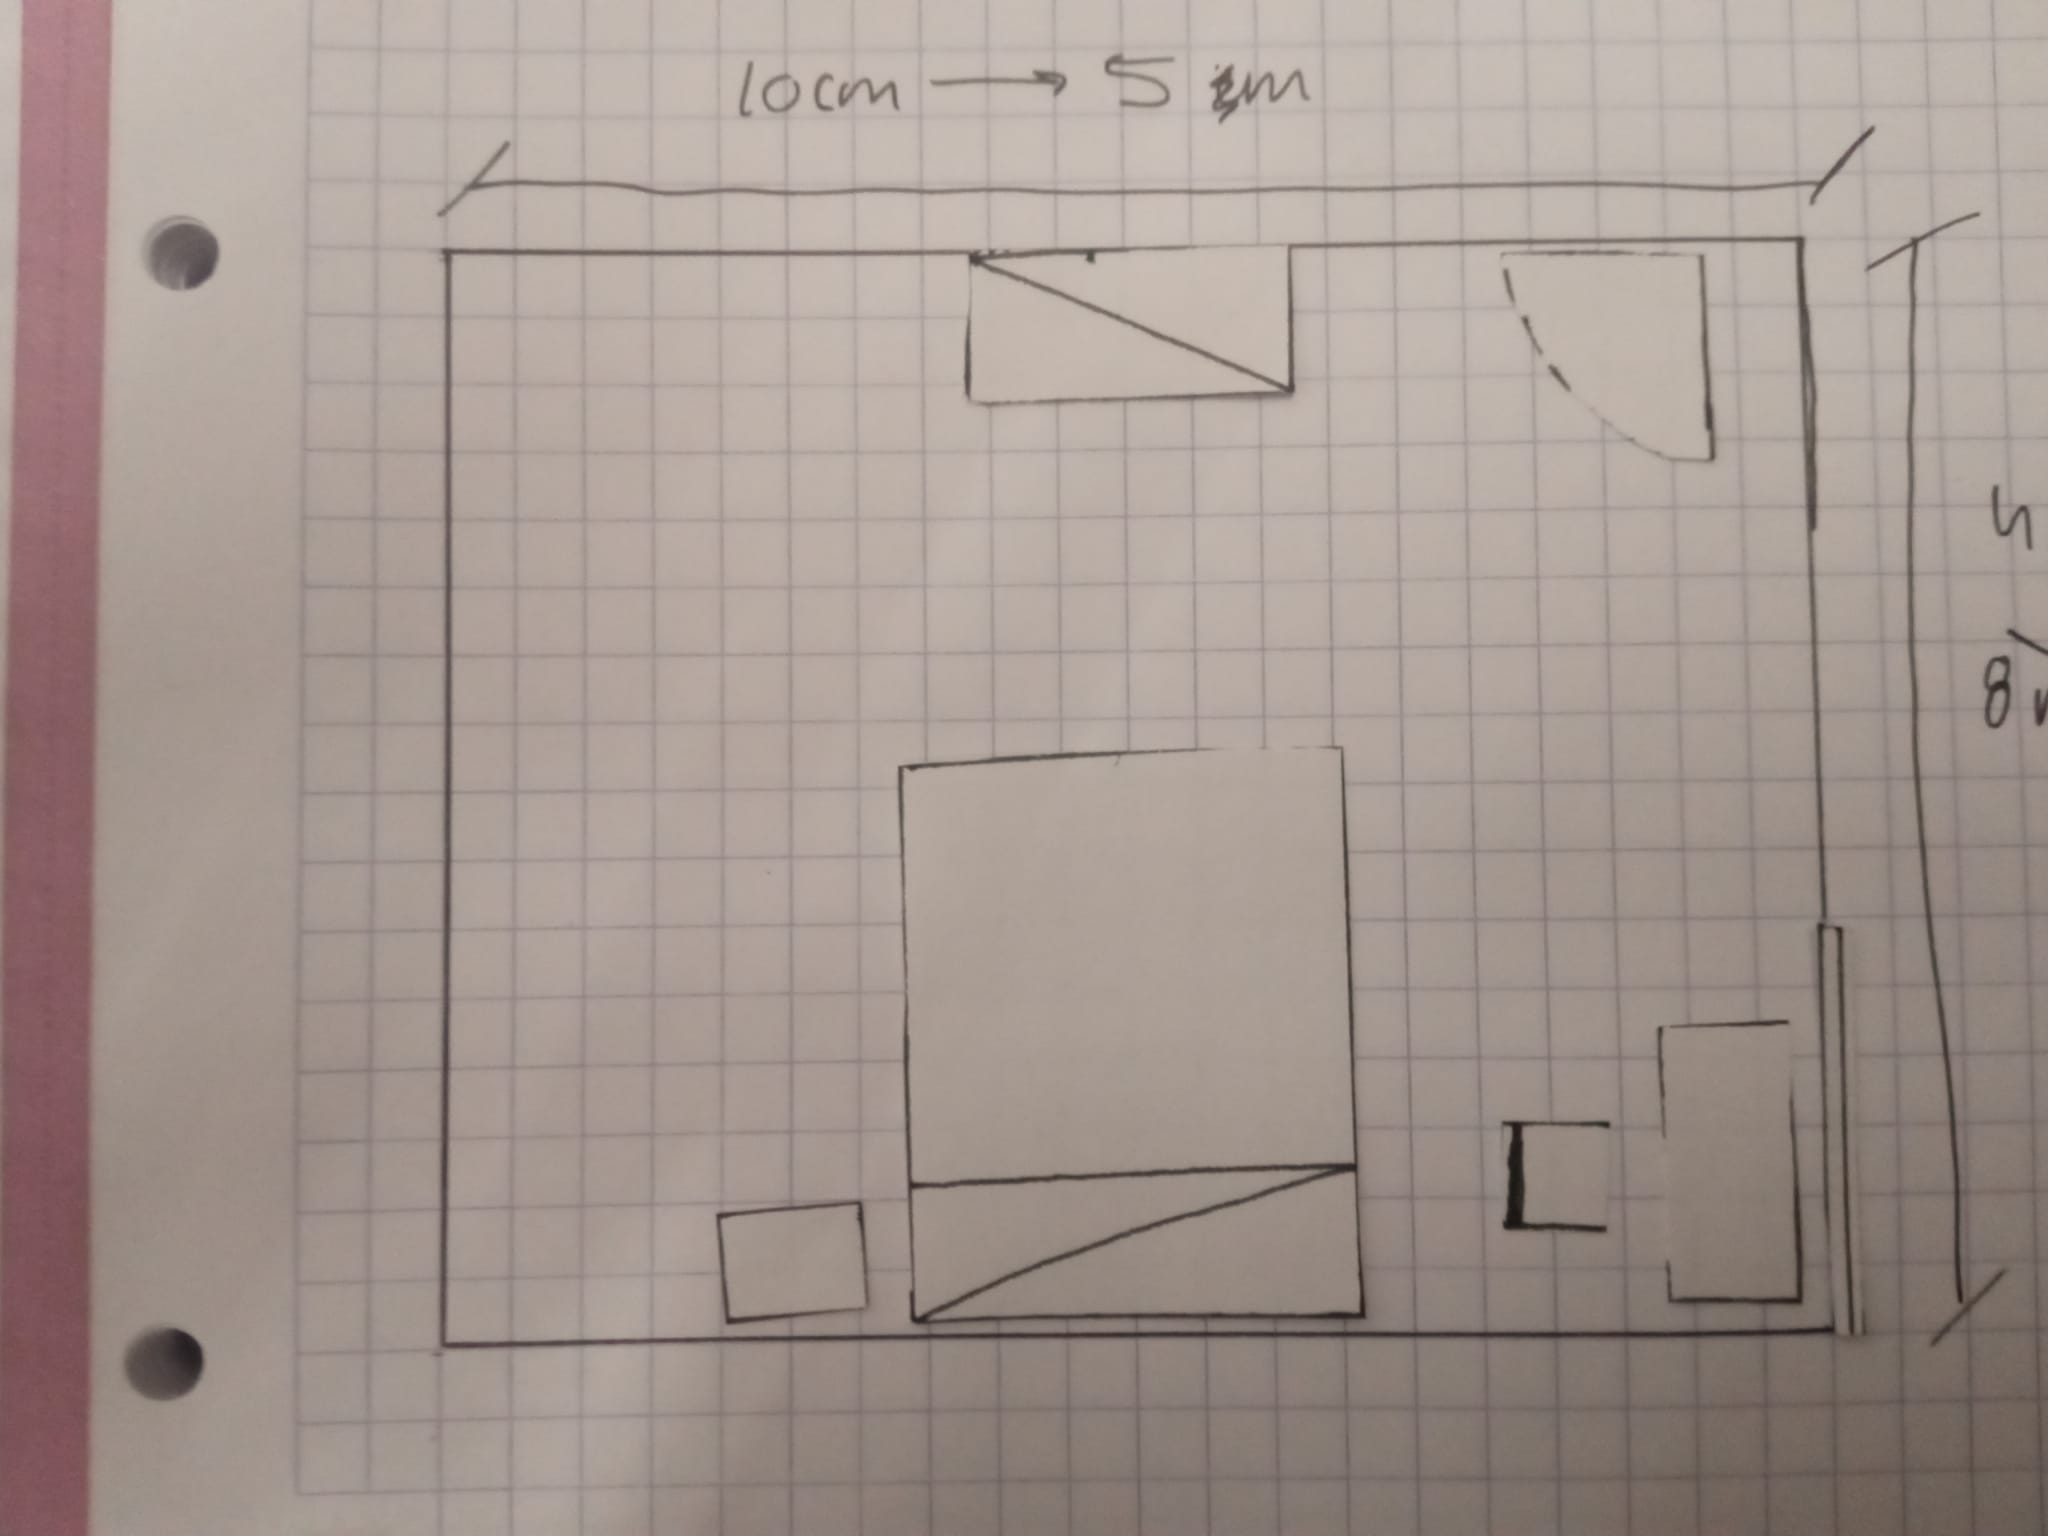 10cm → 5 m
4
8